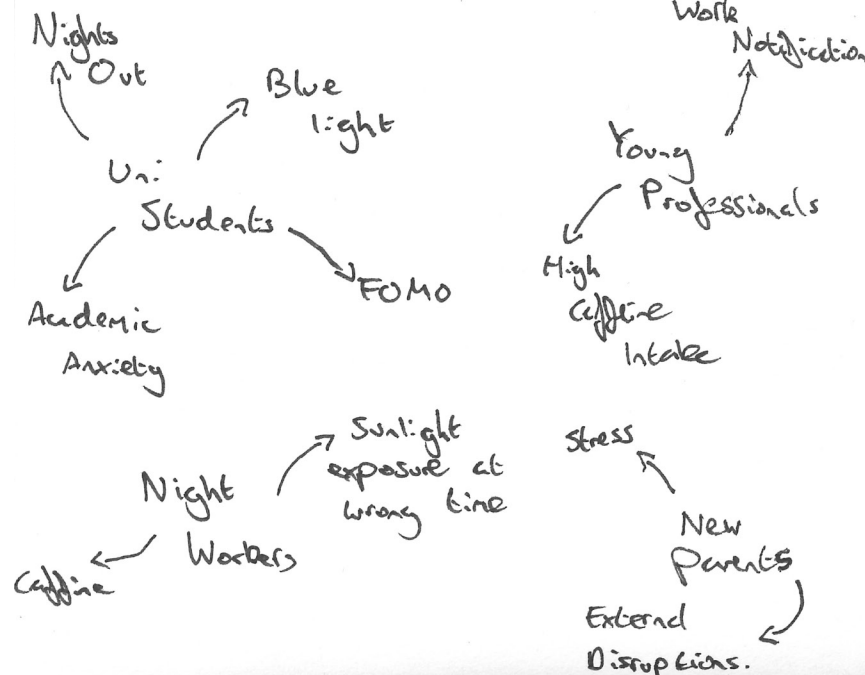 Nights
Out
Blue
light
Uni
Students
FOMO
Academic
Anxiety
Work
Notification
Young
Professionals
High
Caffine
Intake
Sunlight
exposure at
wrong time
Night
Workers
Caffine
Stress
New
Parents
External
Disruptions.